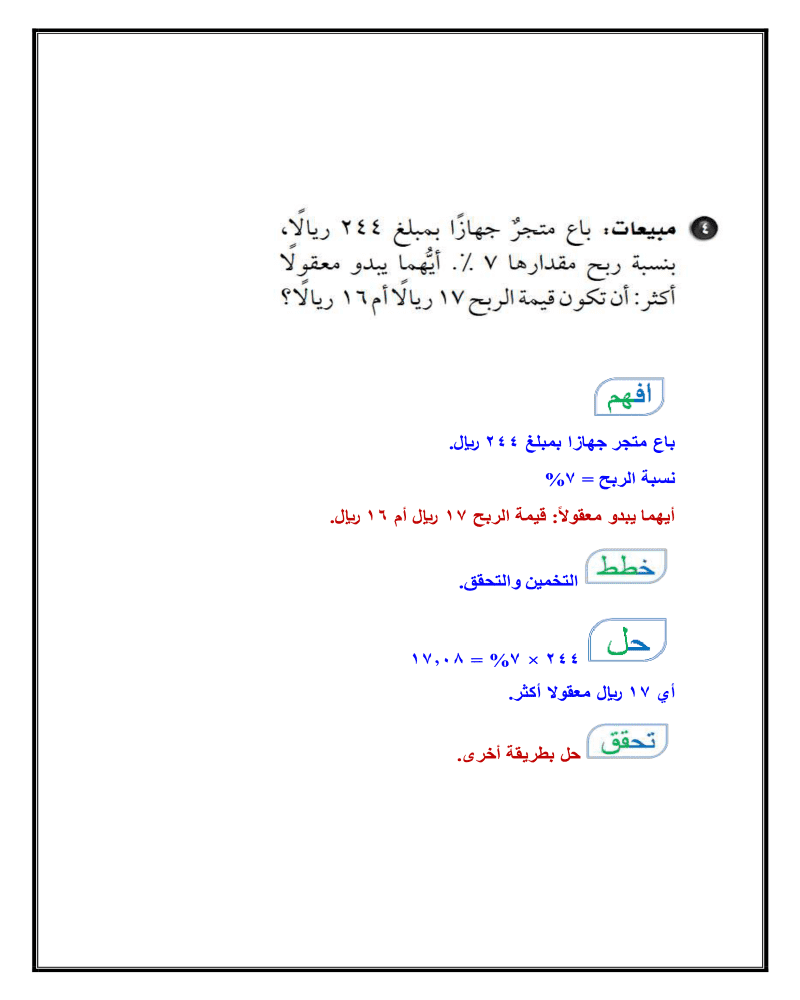 ٤ مبيعات: باع متجرٌ جهازًا بمبلغ ٢٤٤ ريالًا،
بنسبة ربح مقدارها ٧ ٪. أيُّهما يبدو معقولًا
أكثر: أن تكون قيمة الربح ١٧ ريالًا أم ١٦ ريالًا؟
افهم
باع متجر جهازا بمبلغ ٢٤٤ ريال.
نسبة الربح = ٧%
أيهما يبدو معقولاً: قيمة الربح ١٧ ريال أم ١٦ ريال.
خطط التخمين والتحقق.
حل ٢٤٤ × ٧% = ١٧,٠٨
أي ١٧ ريال معقولا أكثر.
تحقق حل بطريقة أخرى.